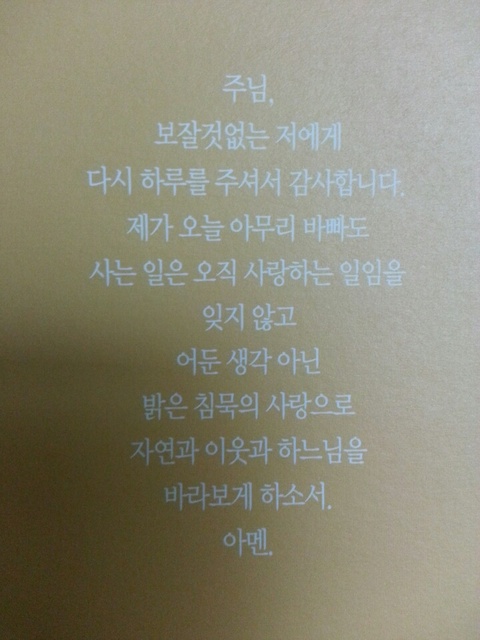 주님,
보잘것없는 저에게
다시 하루를 주셔서 감사합니다.
제가 오늘 아무리 바빠도
사는 일은 오직 사랑하는 일임을
잊지 않고
어둔 생각 아닌
밝은 침묵의 사랑으로
자연과 이웃과 하느님을
바라보게 하소서.
아멘.